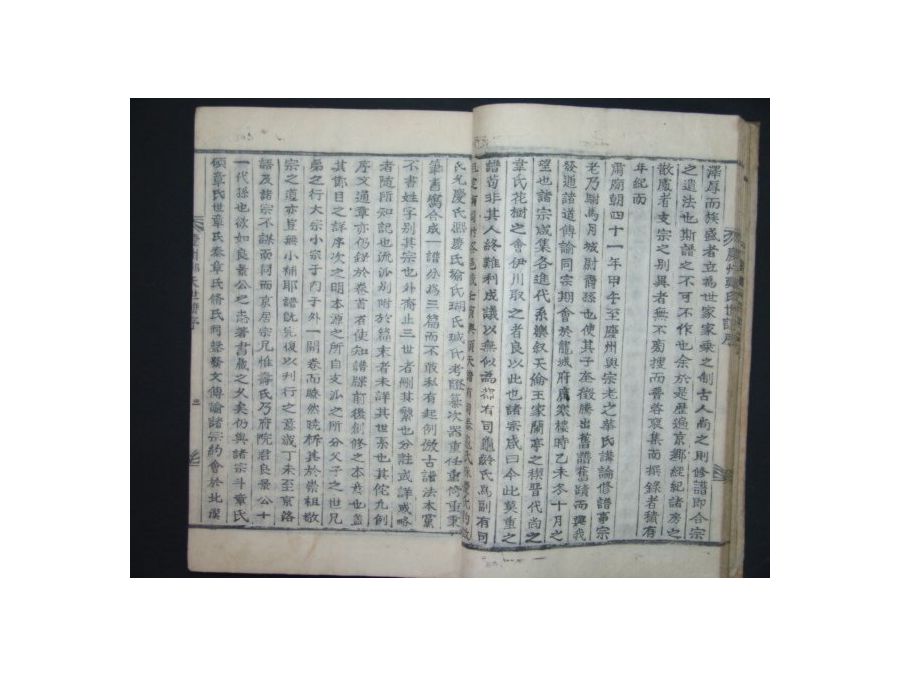 澤厚而族盛者立爲世家家乘之制古人尚之則修譜即合宗
之遺法也斯譜之不可不作也余於是歷遍京鄉經紀諸房之
散處者支宗之別異者無不廣搜而普蓉裒集而撰錄者積有
年紀而
肅廟朝四十一年甲午至慶州與宗老之華氏講論修譜事宗
老乃駙馬月城尉齋孫也使其子奎徵騰出舊譜蓄蹟而興我
發通諸道傳諭同宗期會於龍城府廣寒樓時乙未冬十月之
望也諸宗咸集各進代系樂叙天倫王家蘭亭之稧晋代尚之
韋氏花樹之會伊川取之者良以此也諸宗咸曰今此莫重之
譜苟非其人終難利成議以無似爲都有司龜齡氏爲副有司
筆書寫合成一譜分爲三篇而不敢私有起例倣古譜法本黨
不書姓字別其宗也外裔止三世者刪其繁也分註或詳或略
者隨籍知記也流派別附於篇末者未詳其世系也其佗凡例
序文通章亦仍錄於卷首者使知譜牒前後創修之本意也蓋
其節目之詳序次之明本源之所自支派之所分父子之世兄
弟之行大宗小宗子內子外一開卷而瞭然曉柝其於崇祖敬
宗之道亦豈無小補耶譜旣乳復以刊行之意歲丁未至京洛
語及諸宗不謀而同而京居宗兄惟壽氏乃府院君良景公十
一代孫也欲如良景公之志著書歲之久矣仍與諸宗斗章氏
碩章氏世章氏泰章氏脩氏同聲發文傳諭諸宗約會於北漢
三